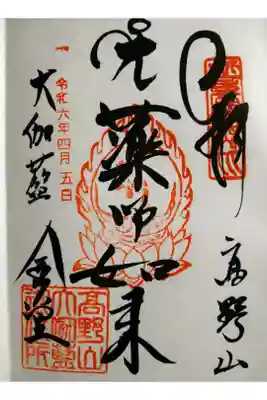 奉拝
高野山
藥師如来
令和六年四月五日
大伽藍
金堂
高野山
大伽藍